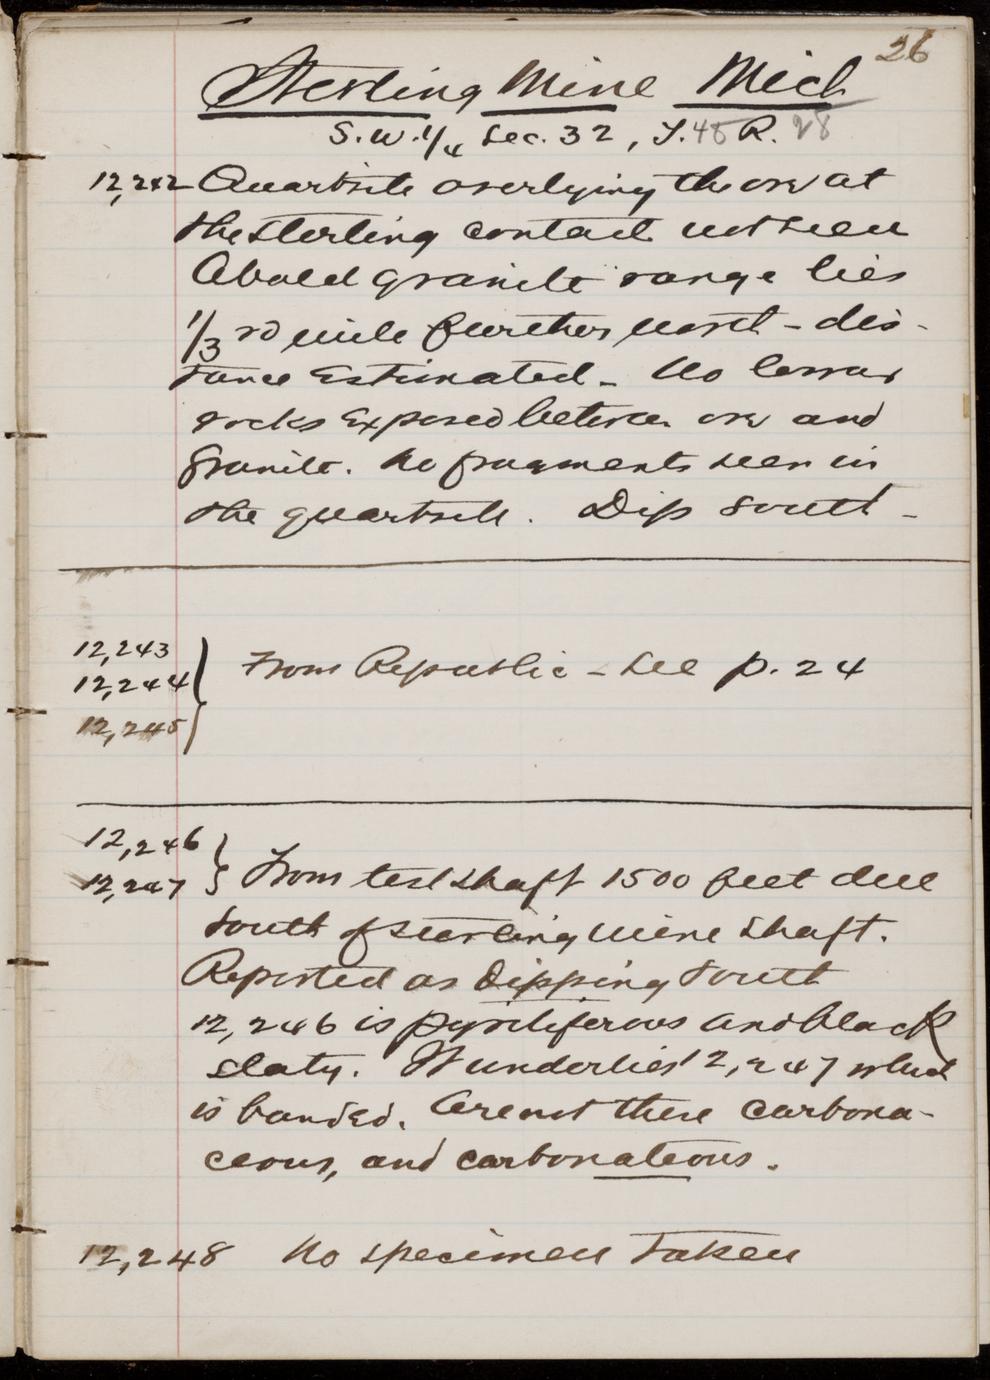 26
Sterling Mine Mich
S.W. 1/4 Sec. 32, T. 48 R. 28
12,242 Quartzite overlying the ore at
the Sterling contact not seen
A bold granite range lies
1/3 rd mile further north - dis-
tance estimated - No lower
rocks exposed between ore and
granite. No fragments seen in
the quartzite. Dip South -
12,243
12,244 } From Republic - See p. 24
12,245
12,246
12,247 } From test shaft 1500 feet due
South of Sterling mine shaft.
Reported as dipping South
12,246 is pyritiferous and black
slaty. It underlies 12,247 which
is banded. Are not these carbona-
ceous, and carbonateous.
12,248 No specimen taken